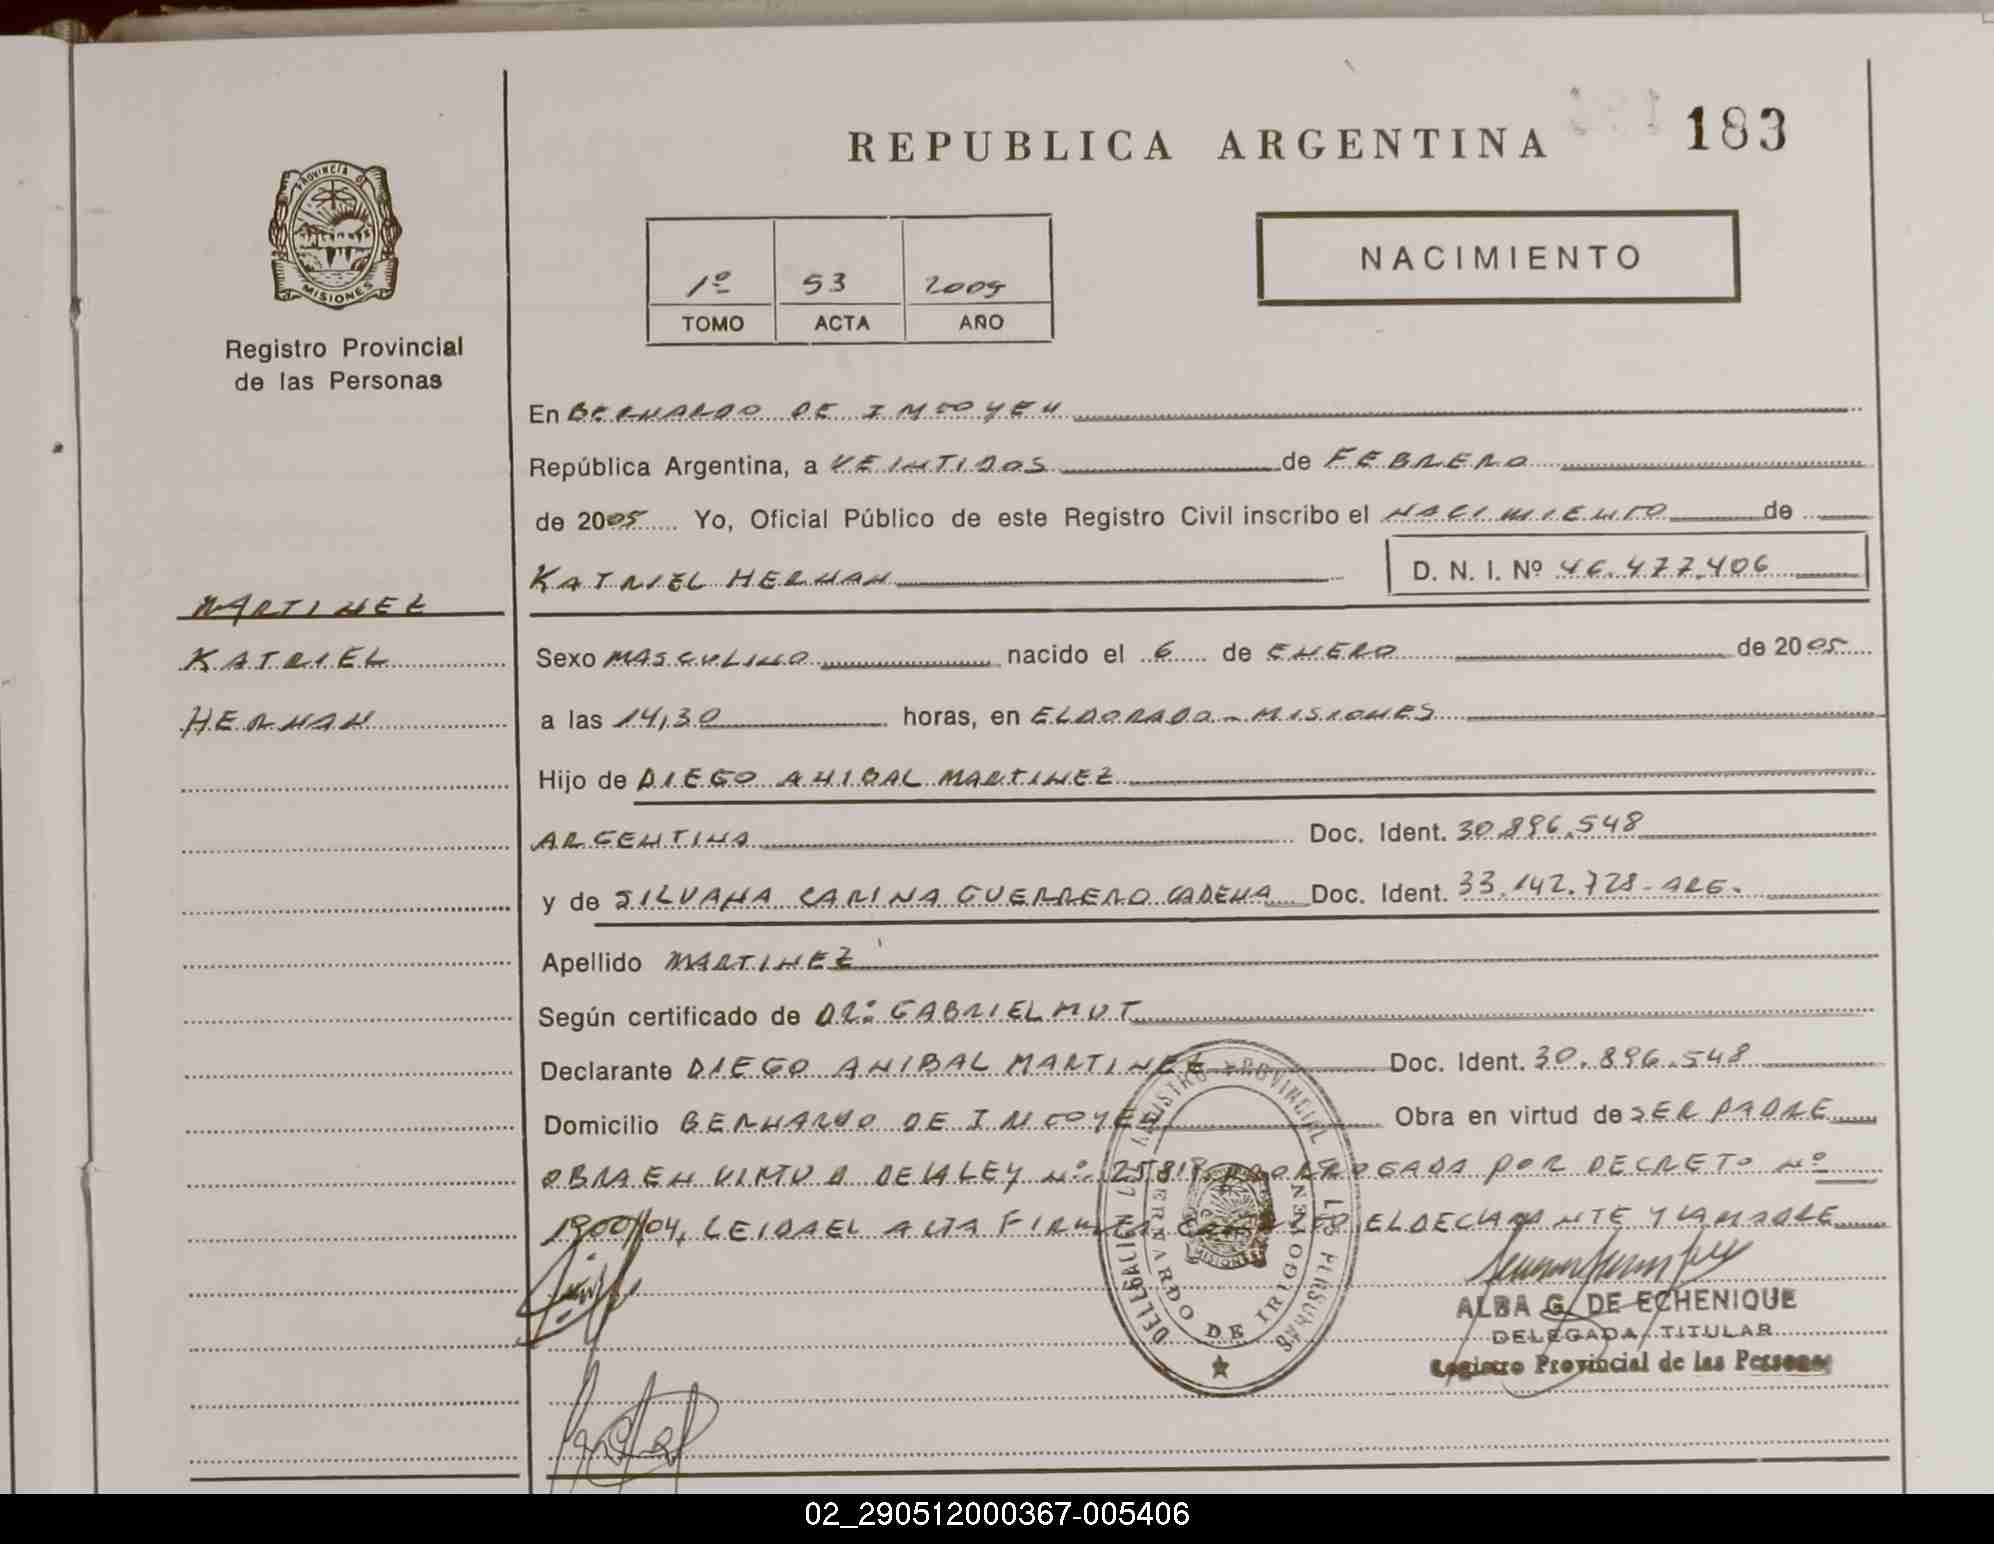 REPUBLICA ARGENTINA
183
PROVINCIA DE
MISIONES
Registro Provincial
de las Personas
1º 53 2005
TOMO ACTA AÑO
NACIMIENTO
En BERNARDO DE IRIGOYEN
República Argentina, a VEINTIDOS de FEBRERO
de 2005 Yo, Oficial Público de este Registro Civil inscribo el NACIMIENTO de
KATRIEL HERNAN D. N. I. Nº 46.477.406
MARTINEZ
KATRIEL
HERNAN
Sexo MASCULINO nacido el 6 de ENERO de 2005
a las 14,30 horas, en ELDORADO - MISIONES
Hijo de DIEGO ANIBAL MARTINEZ
ARGENTINA Doc. Ident. 30.896.548
y de SILVANA CARINA GUERRERO CADENA Doc. Ident. 33.142.728 - ARG.
Apellido MARTINEZ
Según certificado de DR: GABRIEL MUT
Declarante DIEGO ANIBAL MARTINEZ Doc. Ident. 30.896.548
Domicilio BERNARDO DE IRIGOYEN Obra en virtud de SER PADRE
OBRA EN VIRTUD DE LA LEY Nº: 25.819 PRORROGADA POR DECRETO Nº
1900/04, LEIDA EL ACTA FIRMAN EL DECLARANTE Y LA MADRE
DELEGACION REGISTRO PROVINCIAL DE LAS PERSONAS
BERNARDO DE IRIGOYEN
MISIONES
ALBA G. DE ECHENIQUE
DELEGADA TITULAR
Registro Provincial de las Personas
02_290512000367-005406